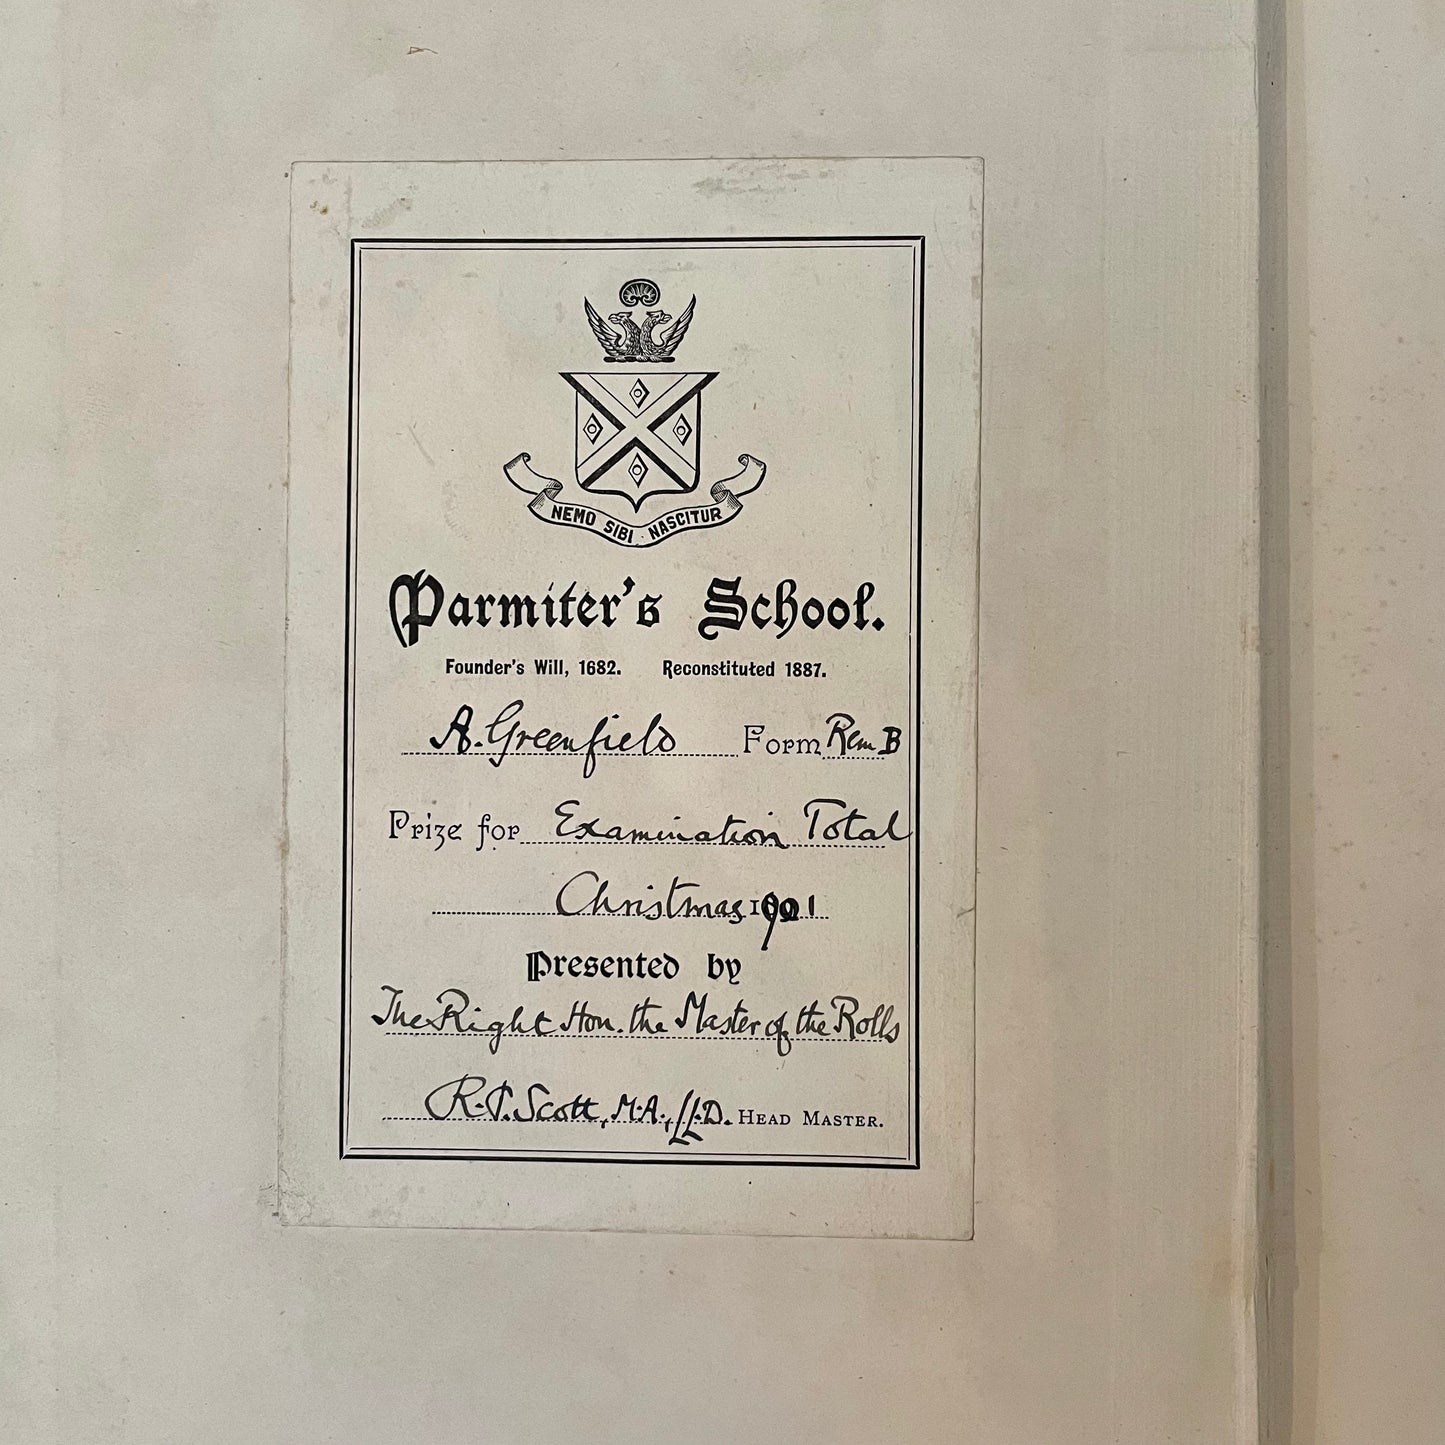 NEMO SIBI NASCITUR
Parmiter's School.
Founder's Will, 1682. Reconstituted 1887.
A. Greenfield Form Rem B
Prize for Examination Total
Christmas 1901
Presented by
The Right Hon. the Master of the Rolls
R. P. Scott, M.A., LL.D. HEAD MASTER.